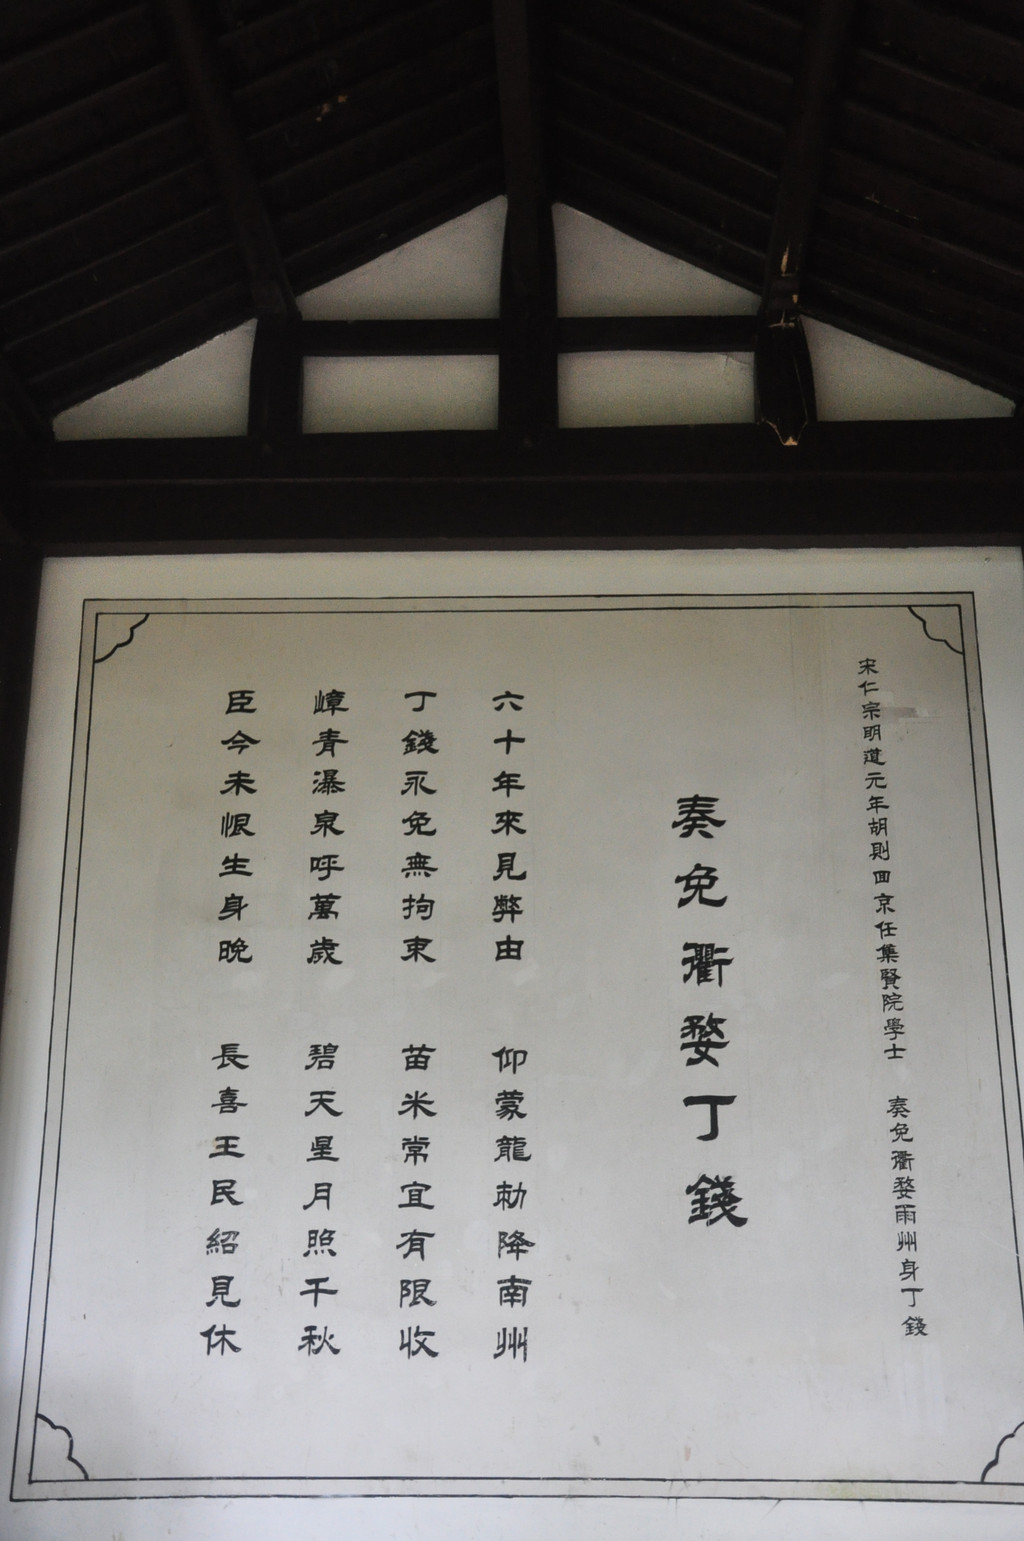 宋仁宗明道元年胡則回京任集賢院學士　奏免衢婺兩州身丁錢
奏免衢婺丁錢
六十年來見弊由　仰蒙龍勅降南州
丁錢永免無拘束　苗米常宜有限收
嶂青瀑泉呼萬歲　碧天星月照千秋
臣今未恨生身晚　長喜王民紹見休